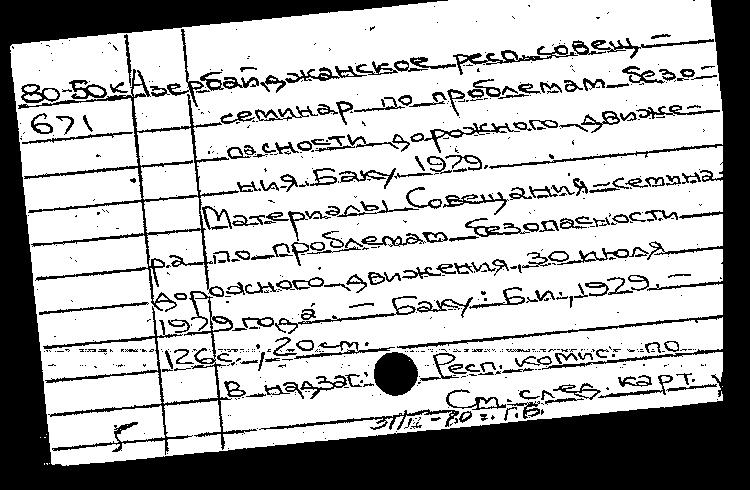 80-50к Азербайджанское респ. совещ.-
671 семинар по проблемам безо-
пасности дорожного движе-
ния. Баку. 1979.
Материалы Совещания-семина-
ра по проблемам безопасности
дорожного движения, 30 июля
1979 года. - Баку: Б.и., 1979. -
126с.; 20см.
В надзаг.: Респ. комис. по
См. след. карт.
5 31/III-80г. Г.В.